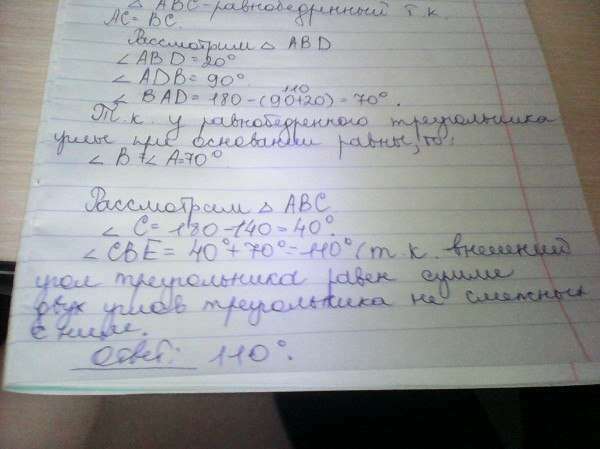 △ ABC-равнобедренный т.к.
AC=BC.
Рассмотрим △ ABD
∠ABD=20°
∠ADB=90°
110
∠BAD=180-(90+20)=70°.
Т.к. у равнобедренного треугольника
углы при основании равны, то:
∠B=∠A=70°
Рассмотрим △ ABC
∠C=180-140=40°.
∠CBE=40°+70°=110° (т.к. внешний
угол треугольника равен сумме
двух углов треугольника не смежных
с ним.
Ответ: 110°.